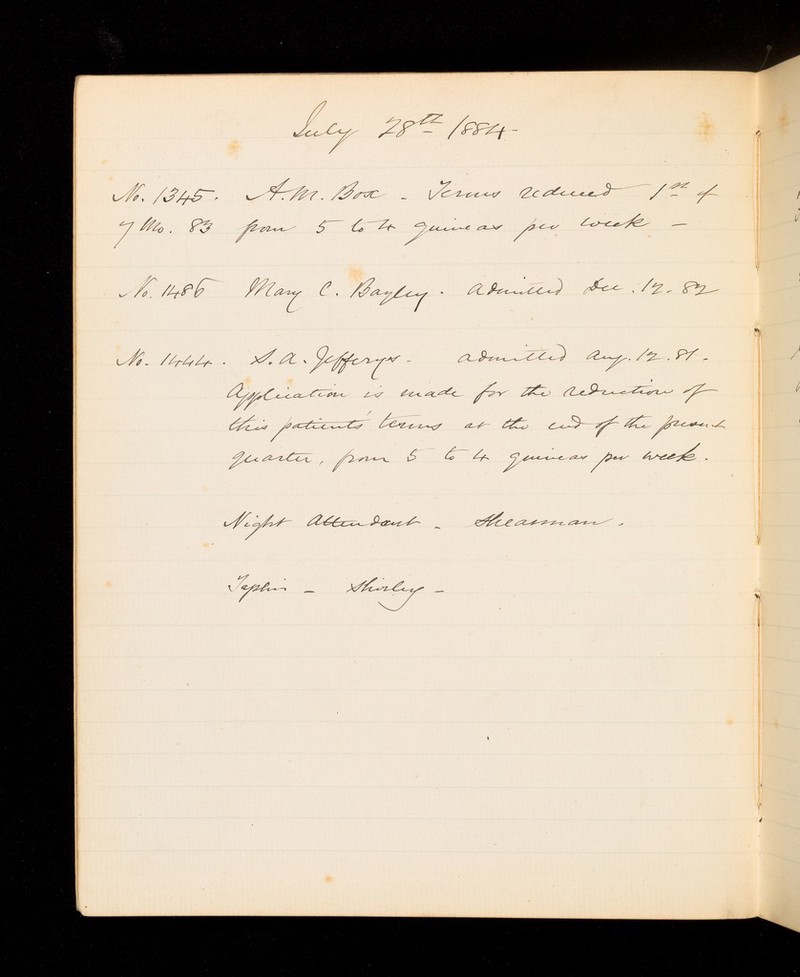 July 28th 1884-
No. 1345. A.M. Box - Terms reduced 1st of
7 Mo. 83 from 5 to 4 guineas per week -
No. 1486 Mary C. Bayley. admitted Dec. 12. 82
No. 1444. S.A. Jefferys - admitted Aug. 12. 81-
Application is made for the reduction of
this patients' terms at the end of the present
quarter, from 5 to 4 guineas per week.
Night Attendant - Shearman.
Taplin - Shirley -